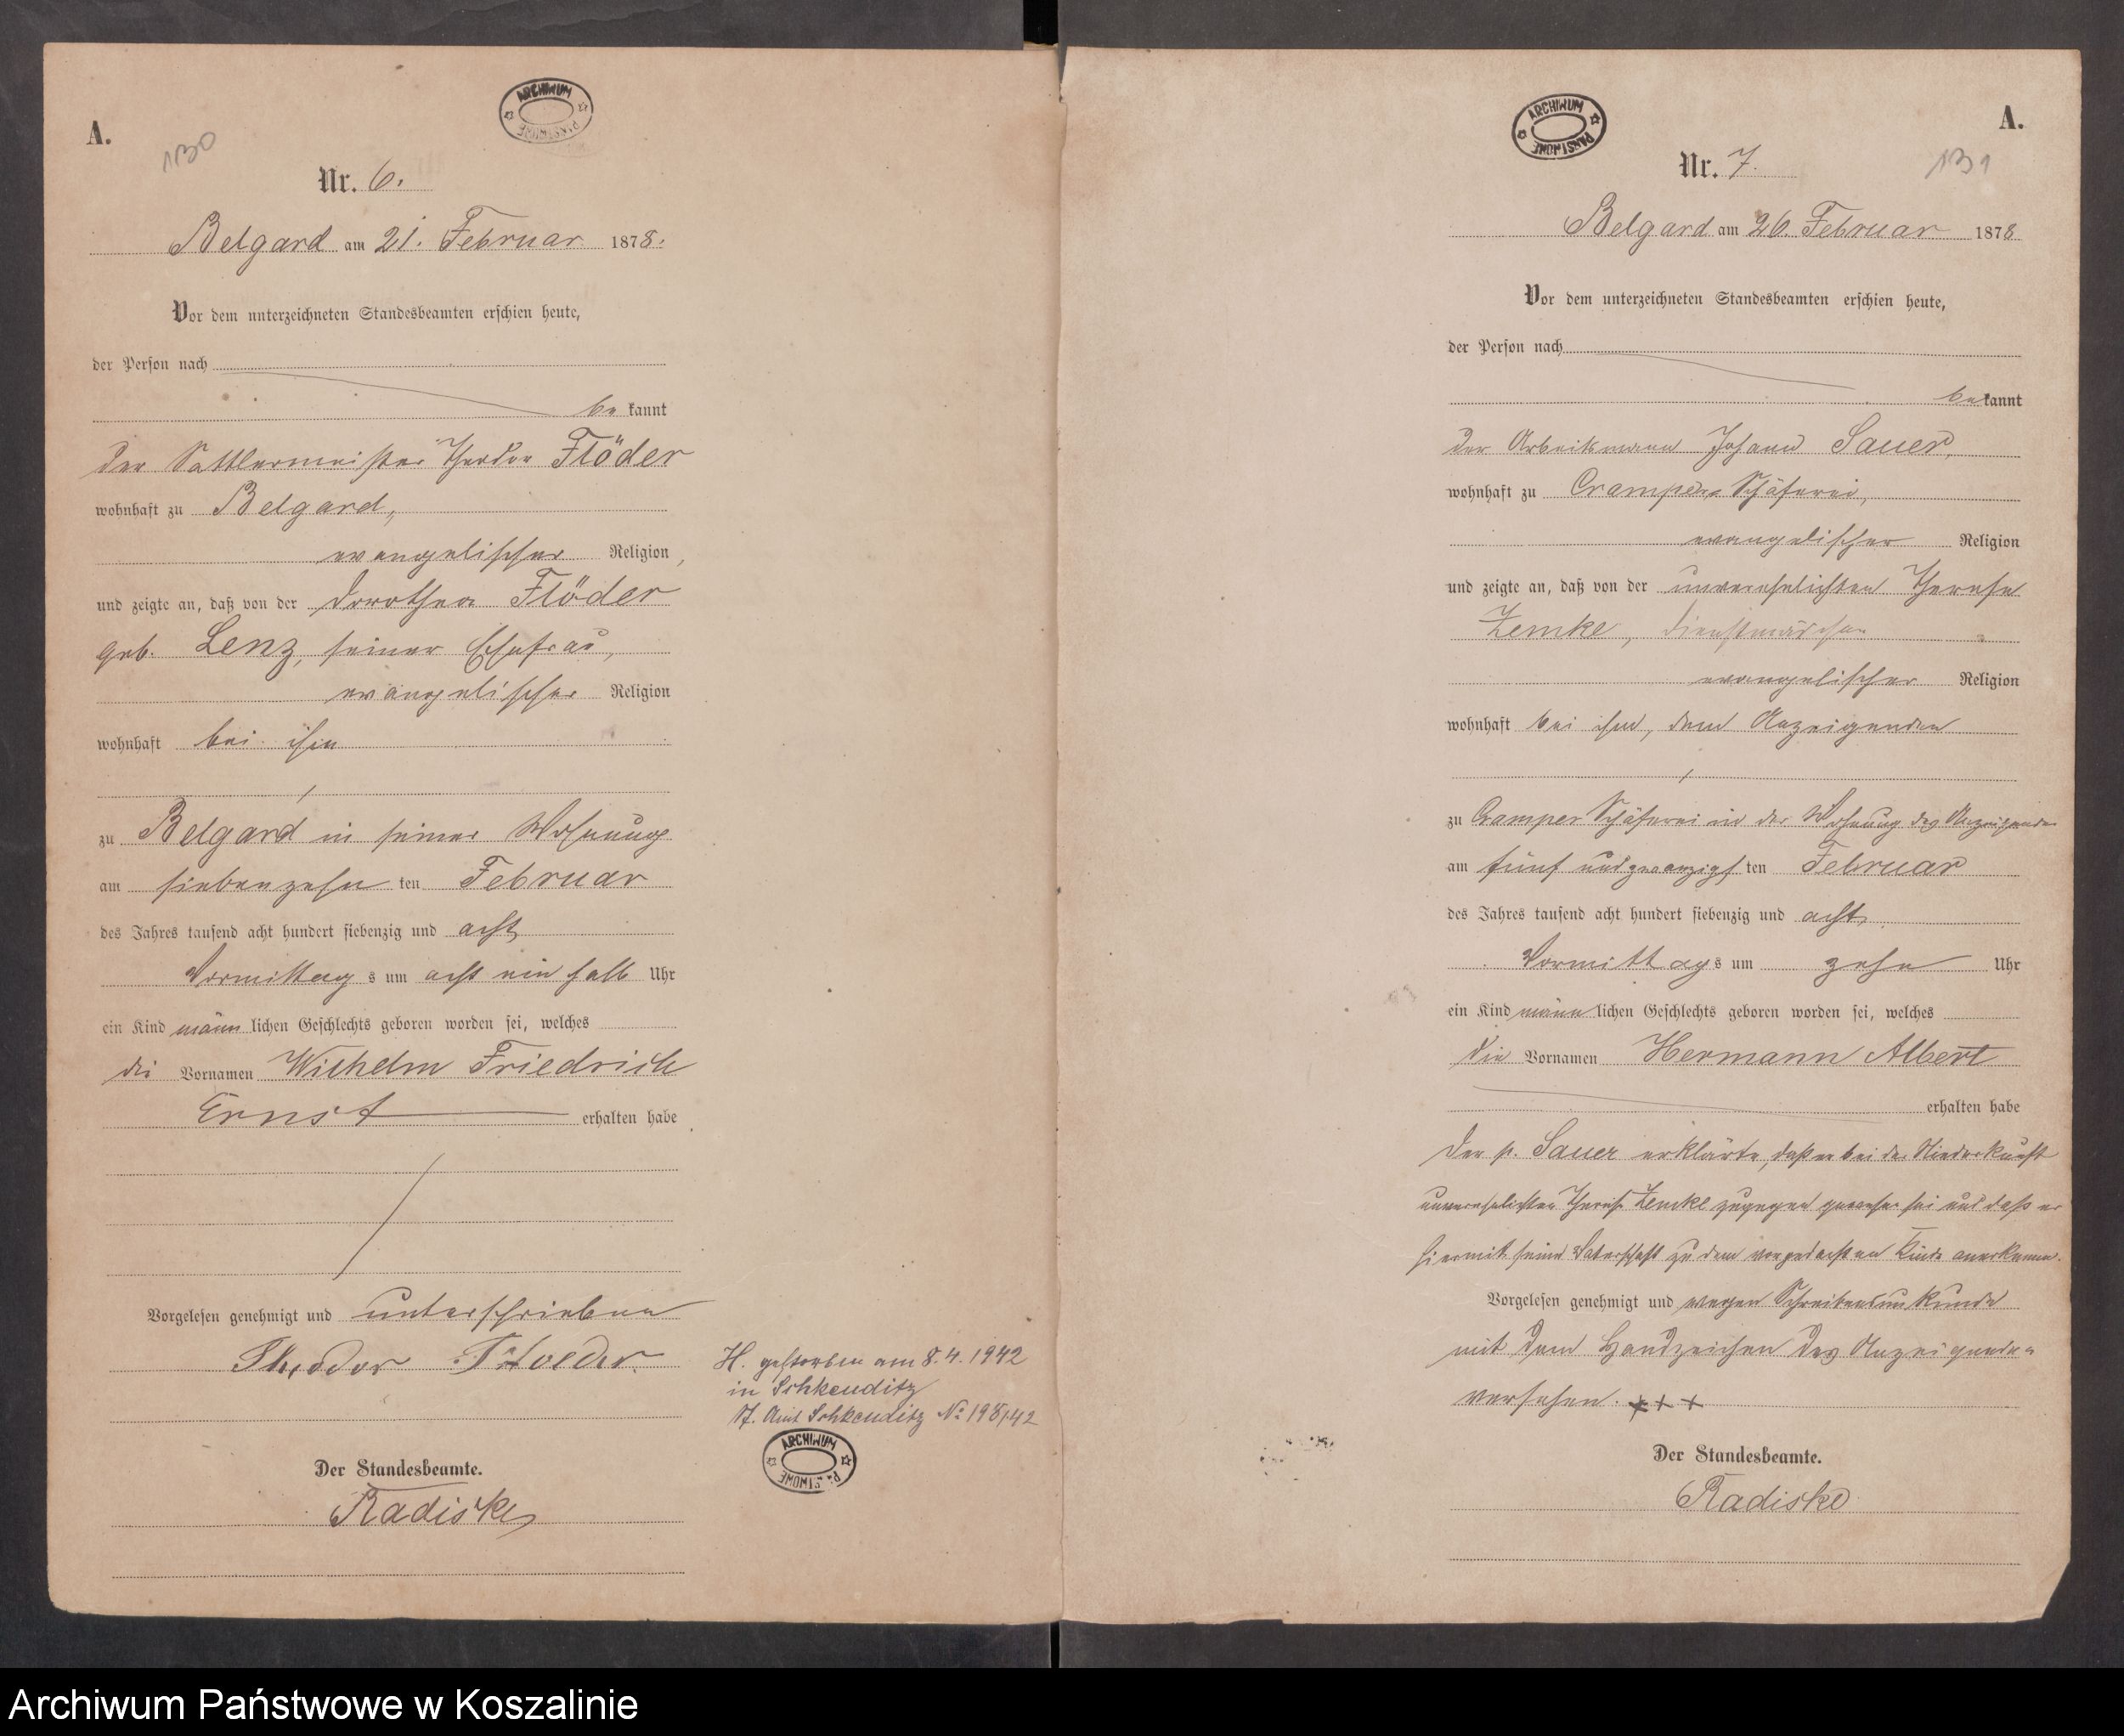 A.
130
ARCHIWUM PAŃSTWOWE
Nr. 6.
Belgard am 21. Februar 1878.
Vor dem unterzeichneten Standesbeamten erschien heute,
der Person nach
be kannt
der Sattlermeister Theodor Flöder
wohnhaft zu Belgard,
evangelischer Religion,
und zeigte an, daß von der Dorothea Flöder
geb. Lenz, seiner Ehefrau,
evangelischer Religion
wohnhaft bei ihm
zu Belgard in seiner Wohnung
am siebenzehn ten Februar
des Jahres tausend acht hundert siebenzig und acht
Vormittag s um acht ein halb Uhr
ein Kind männ lichen Geschlechts geboren worden sei, welches
die Vornamen Wilhelm Friedrich
Ernst erhalten habe
Vorgelesen genehmigt und unterschrieben
Theodor Floeder.
Der Standesbeamte.
Radiske
H. gestorben am 8.4.1942
in Schkeuditz
St. Amt Schkeuditz No 198/42
ARCHIWUM PAŃSTWOWE
A.
131
ARCHIWUM PAŃSTWOWE
Nr. 7.
Belgard am 26. Februar 1878
Vor dem unterzeichneten Standesbeamten erschien heute,
der Person nach
be kannt
der Arbeitsmann Johann Sauer,
wohnhaft zu Cramper Schäferei,
evangelischer Religion
und zeigte an, daß von der unverehelichten Therese
Zemke, Dienstmädchen
evangelischer Religion
wohnhaft bei ihm, dem Anzeigenden
zu Cramper Schäferei in der Wohnung des Anzeigenden
am fünf und zwanzigs ten Februar
des Jahres tausend acht hundert siebenzig und acht,
Vormittag s um zehn Uhr
ein Kind männ lichen Geschlechts geboren worden sei, welches
die Vornamen Hermann Albert
erhalten habe
Der p. Sauer erklärte, daß er bei der Niederkunft
unverehelichten Therese Zemke zugegen gewesen sei und daß er
hiermit seine Vaterschaft zu dem vorgedachten Kinde anerkenne.
Vorgelesen genehmigt und wegen Schreibensunkunde
mit dem Handzeichen des Anzeigenden
versehen. + + +
Der Standesbeamte.
Radiske
Archiwum Państwowe w Koszalinie